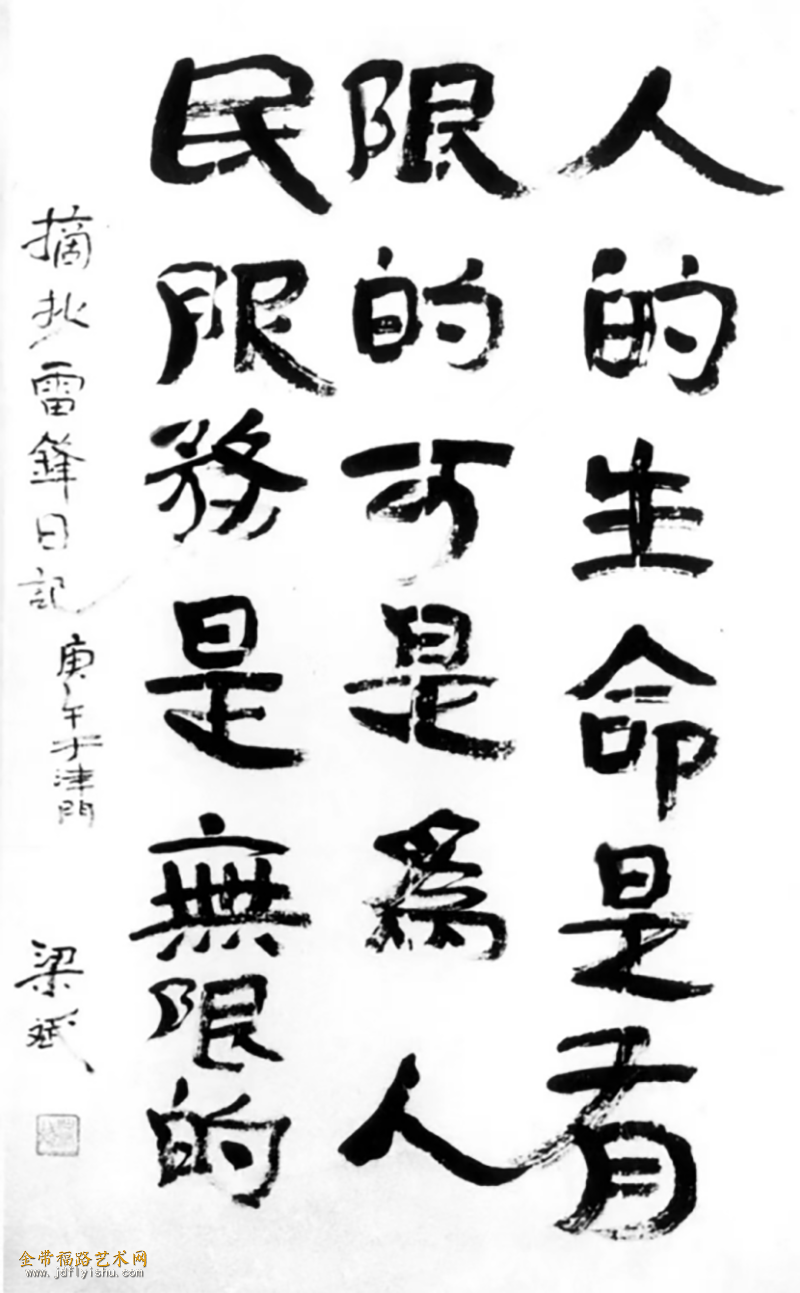 人的生命是有
限的可是為人
民服務是無限的
摘抄雷鋒日記
庚午于津門
梁斌
金带福路艺术网
www.jdflyishu.com